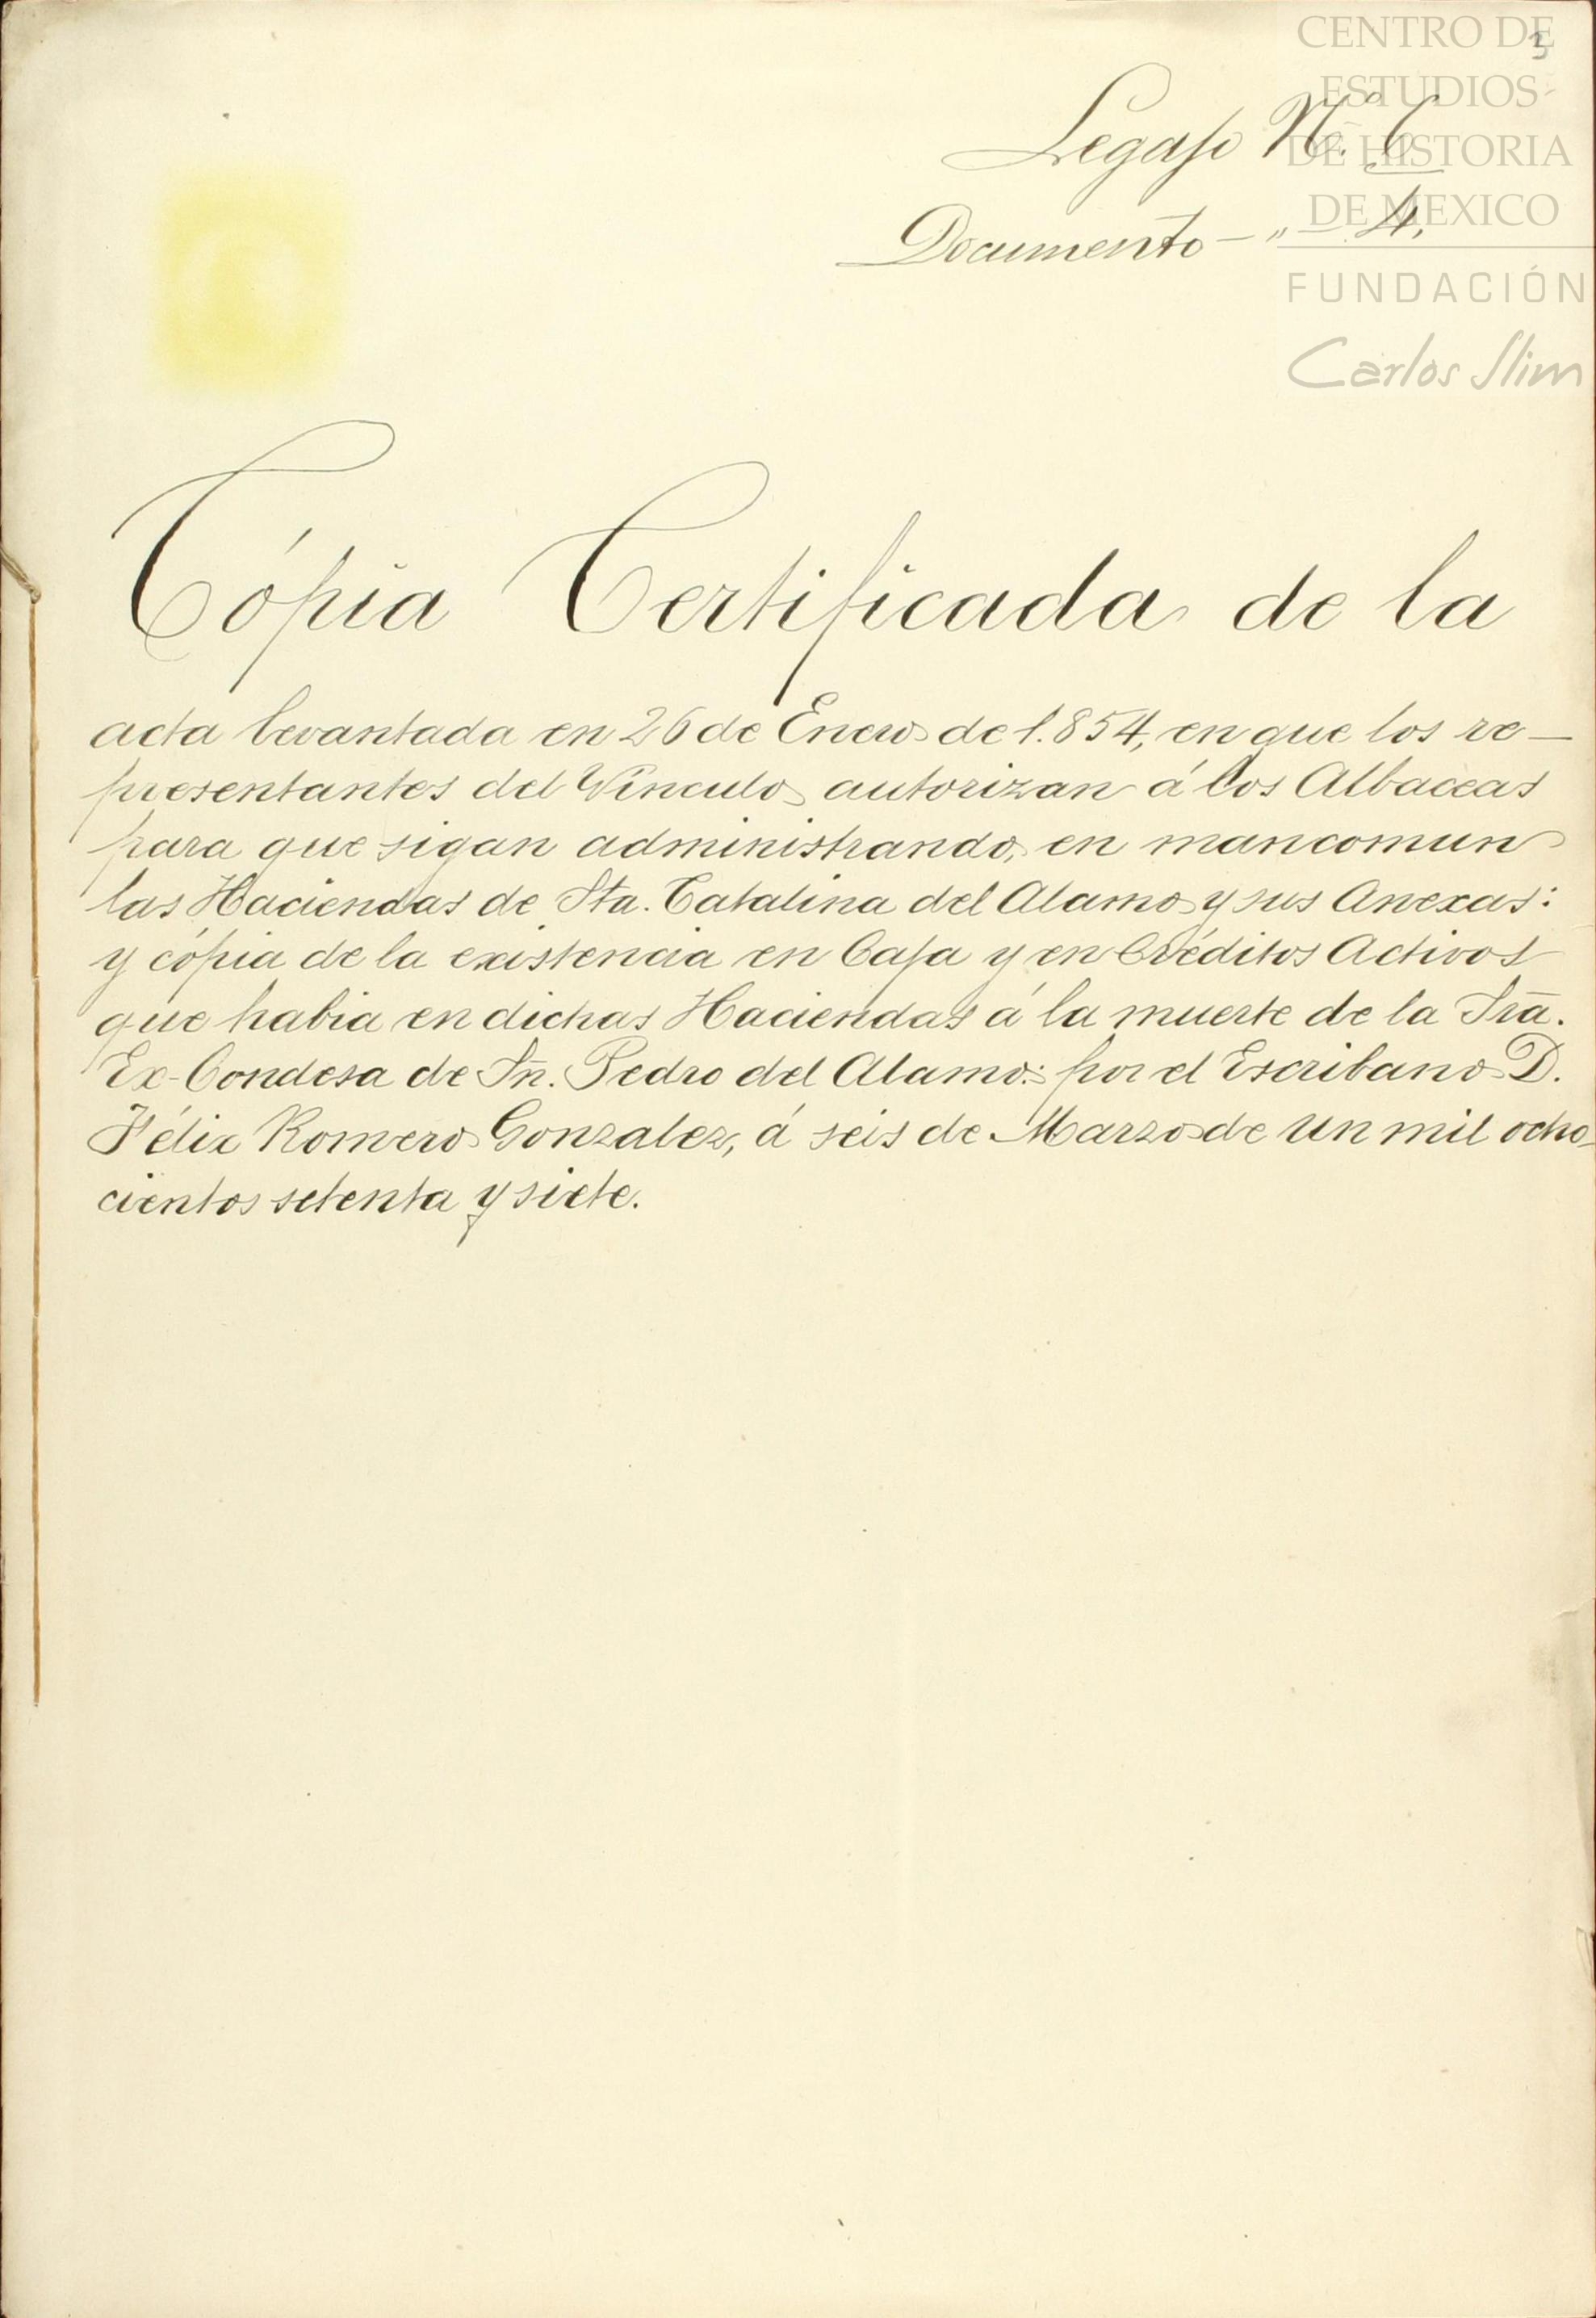 CENTRO DE
ESTUDIOS
DE HISTORIA
DE MEXICO
FUNDACIÓN
Carlos Slim
3
Legajo Nº. 6
Documento — " — 4.
Cópia Certificada de la
acta levantada en 26 de Enero de 1.854, en que los re—
presentantes del Vínculo autorizan á los Albaceas
para que sigan administrando, en mancomun
las Haciendas de Sta. Catalina del Alamo y sus Anexas:
y cópia de la existencia en Caja y en Créditos Activos
que habia en dichas Haciendas á la muerte de la Srã.
Ex-Condesa de Sn̄. Pedro del Alamo: por el Escribano D.
Félix Romero Gonzalez, á seis de Marzo de un mil ocho—
cientos setenta y siete.